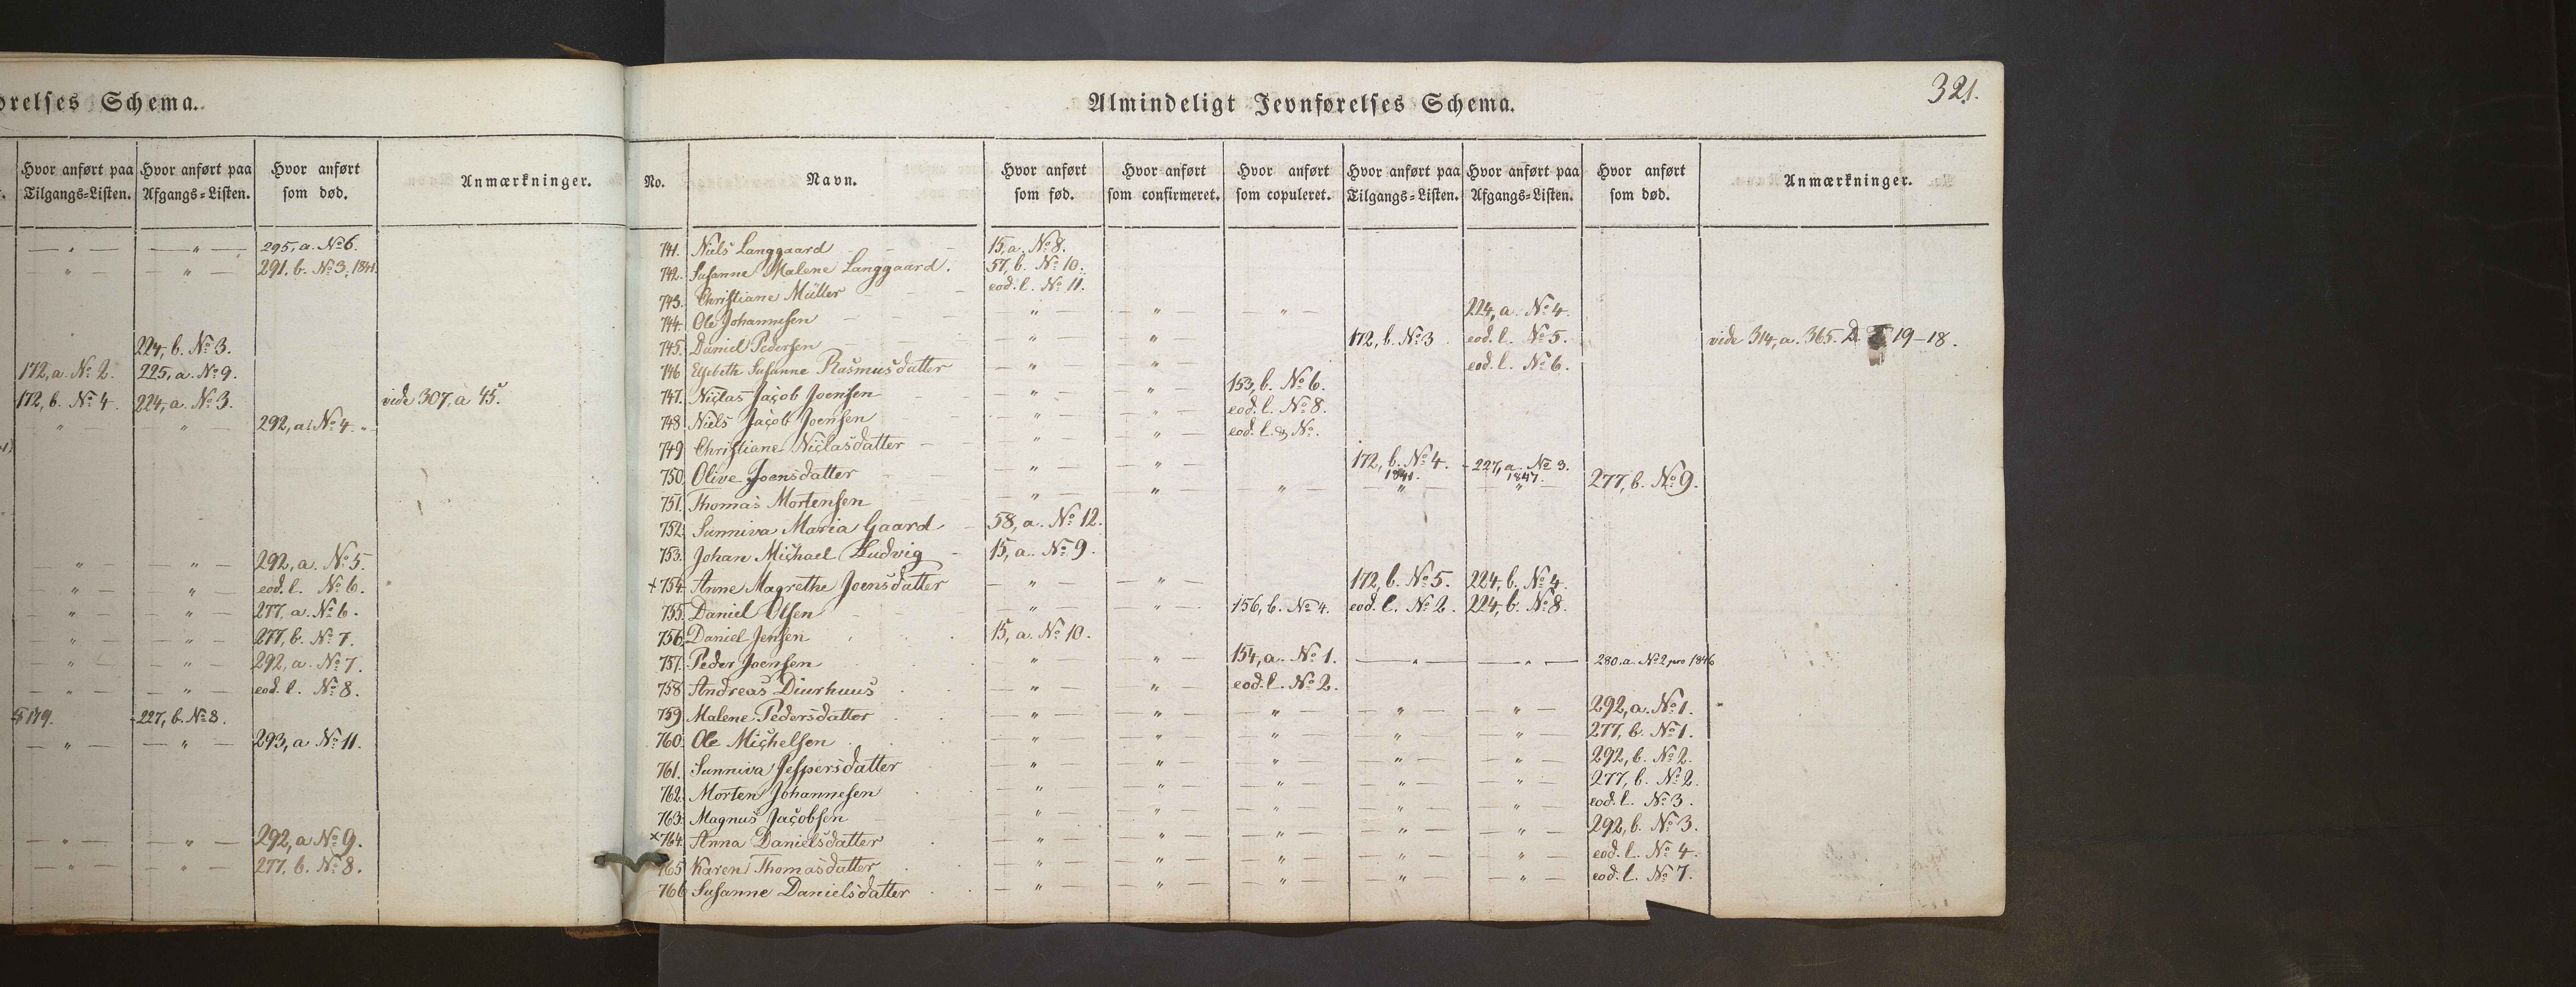 ørelses Schema.
Hvor anført paa Tilgangs-Listen. Hvor anført paa Afgangs-Listen. Hvor anført som død. Anmærkninger.
— " — — " — 295, a. No 6.
— " — — " — 291. b. No 3, 1841.
224, b. No 3.
172, a. No 2. 225, a. No 9.
172, b. No 4. 224, a. No 3. vide 307, a 45.
— " — — " — 292, a. No 4.
— " — — " — 292, a. No 5.
— " — — " — eod. l. No 6.
— " — — " — 277, a. No 6.
— " — — " — 277, b. No 7.
— " — — " — 292, a. No 7.
— " — — " — eod. l. No 8.
179. 227, b. No 8.
— " — — " — 293, a No 11.
— " — — " — 292, a No 9.
— " — — " — 277, b. No 8.
Almindeligt Jevnførelses Schema.
321.
No. Navn. Hvor anført som fød. Hvor anført som confirmeret. Hvor anført som copuleret. Hvor anført paa Tilgangs-Listen. Hvor anført paa Afgangs-Listen. Hvor anført som død. Anmærkninger.
741. Niels Langgaard 15, a. No 8.
742. Susanne Malene Langgaard. 57, b. No 10.
743. Christiane Müller eod. l. No 11.
744. Ole Johannesen — " — — " — — " — 224, a. No 4.
745. Daniel Pedersen — " — — " — 172, b. No 3 eod. l. No 5. vide 314, a. 365. 19-18.
746 Elsebeth Susanne Rasmusdatter — " — — " — eod. l. No 6.
747. Niclas Jacob Joensen — " — — " — 153, b. No 6.
748 Niels Jacob Joensen — " — — " — eod. l. No 8.
749 Christiane Niclasdatter — " — — " — eod. l. & No.
750. Olive Joensdatter — " — — " — 172, b. No 4. 1841. 227, a. No 3. 1847.
751. Thomas Mortensen — " — — " — — " — — " — — " — 277, b. No 9.
752. Sunniva Maria Gaard 58, a. No 12.
753. Johan Michael Ludvig 15, a. No 9.
+ 754. Anne Magrethe Joensdatter — " — — " — 172, b. No 5. 224, b. No 4.
755. Daniel Olsen — " — — " — 156, b. No 4. eod. l. No 2. 224, b. No 8.
756. Daniel Jensen 15, a. No 10.
757. Peder Joensen — " — — " — 154, a. No 1. — " — — " — 280. a. No 2, pro 1846
758 Andreas Diurhuus — " — — " — eod. l. No 2.
759 Malene Pedersdatter — " — — " — — " — — " — — " — 292, a. No 1.
760. Ole Michelsen — " — — " — — " — — " — — " — 277, b. No 1.
761. Sunniva Jespersdatter — " — — " — — " — — " — — " — 292, b. No 2.
762. Morten Johannesen — " — — " — — " — — " — — " — 277, b. No 2.
763. Magnus Jacobsen — " — — " — — " — — " — — " — eod. l. No 3.
× 764. Anna Danielsdatter — " — — " — — " — — " — — " — 292, b. No 3.
765 Karen Thomasdatter — " — — " — — " — — " — — " — eod. l. No 4.
766 Susanne Danielsdatter — " — — " — — " — — " — — " — eod. l. No 7.